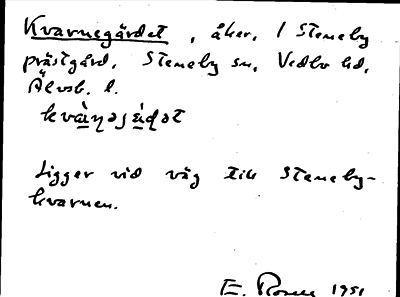 Kvarnegärdet, åker, 1 Steneby
prästgård, Steneby sn, Vedbo hd,
Älvsb. l.
Ligger vid väg till Steneby-
kvarnen.
E. Rosén 1951